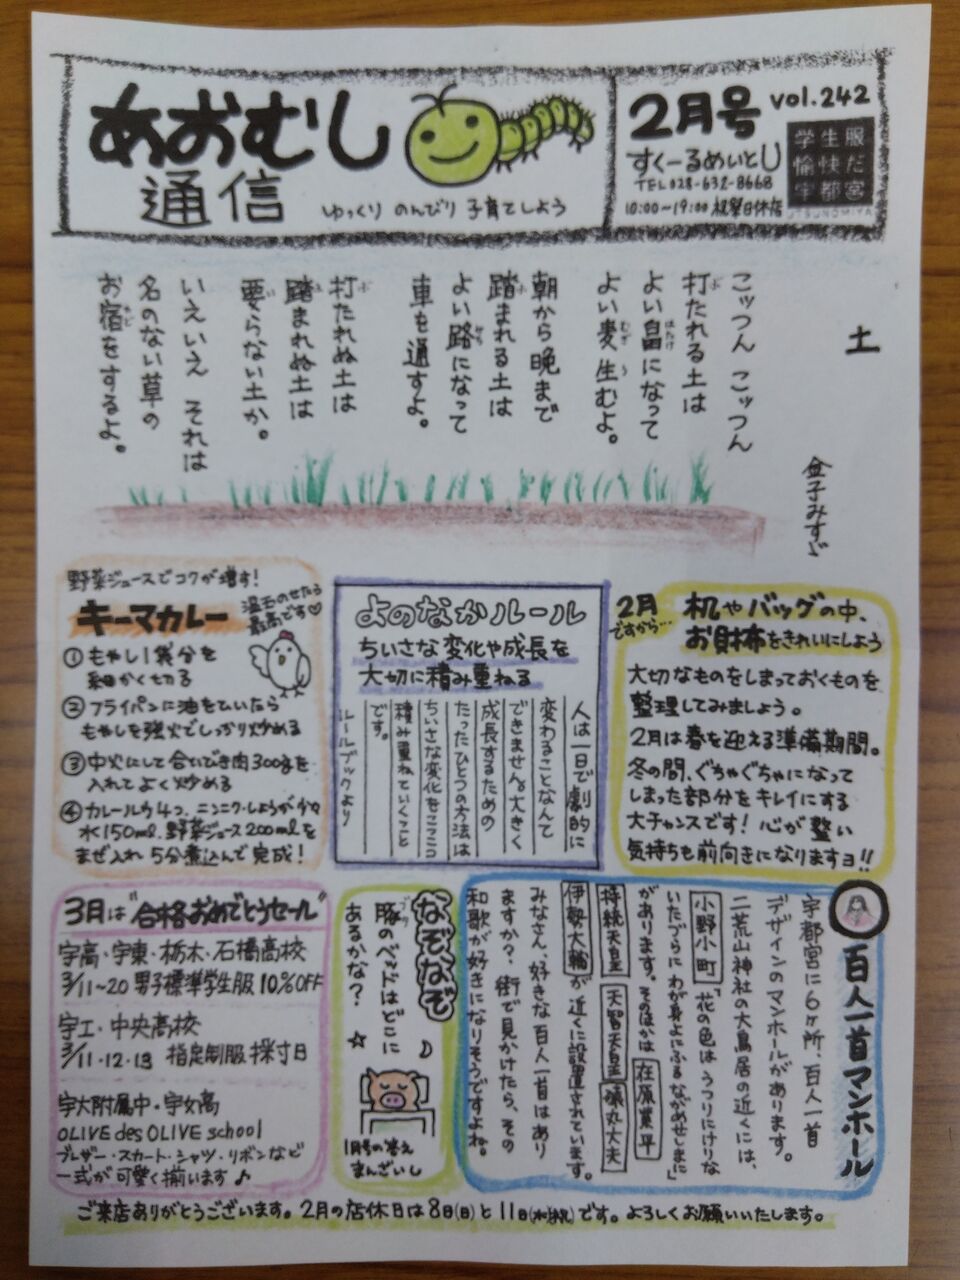 あおむし
通信
ゆっくり のんびり 子育てしよう
2月号 vol.242
すくーるめいとU
TEL 028-632-8668
10:00〜19:00 祝祭日休店
学生服
愉快だ
宇都宮
UTSUNOMIYA
土
金子みすゞ
こッつん こッつん
打たれる土は
よい畠になって
よい麦生むよ。
朝から晩まで
踏まれる土は
よい路になって
車を通すよ。
打たれぬ土は
踏まれぬ土は
要らない土か。
いえいえ それは
名のない草の
お宿をするよ。
野菜ジュースでコクが増す!
キーマカレー
温玉のせたら
最高です♡
① もやし1袋分を
細かくもぎる
② フライパンに油をひいたら
もやしを強火でしっかり炒める
③ 中火にして合いびき肉300gを
入れてよく炒める
④ カレールウ4つ、ニンニク・しょうが少々
水150ml、野菜ジュース200mlを
まぜ入れ 5分煮込んで完成!
よのなかルール
ちいさな変化や成長を
大切に積み重ねる
人は一日で劇的に
変わることなんて
できません。大きく
成長するための
たったひとつの方法は
ちいさな変化をコツコツ
積み重ねていくこと
です。
ルールブックより
2月
ですから…
机やバッグの中、
お財布をきれいにしよう
大切なものをしまっておくものを
整理してみましょう。
2月は春を迎える準備期間。
冬の間、ぐちゃぐちゃになって
しまった部分をキレイにする
大チャンスです! 心が整い
気持ちも前向きになりますョ!!
3月は"合格おめでとうセール"
宇高・宇東・栃木・石橋高校
3/11〜20 男子標準学生服 10%OFF
宇工・中央高校
3/11・12・13 指定制服採寸日
宇大附属中・宇女高
OLIVE des OLIVE school
ブレザー・スカート・シャツ・リボンなど
一式が可愛く揃います♪
なぞなぞ
豚のベッドはどこに
あるかな?
1月号の答え
まんざいし
百人一首マンホール
宇都宮に6ヶ所、百人一首
デザインのマンホールがあります。
二荒山神社の大鳥居の近くには、
小野小町「花の色は うつりにけりな
いたづらに わが身よにふる ながめせしまに」
があります。そのほかは 在原業平
持統天皇 天智天皇 猿丸大夫
伊勢大輔 が近くに設置されています。
みなさん、好きな百人一首はあり
ますか? 街で見かけたら、その
和歌が好きになりそうですよね。
ご来店ありがとうございます。2月の店休日は8日(日)と11日(水・祝)です。よろしくお願いいたします。